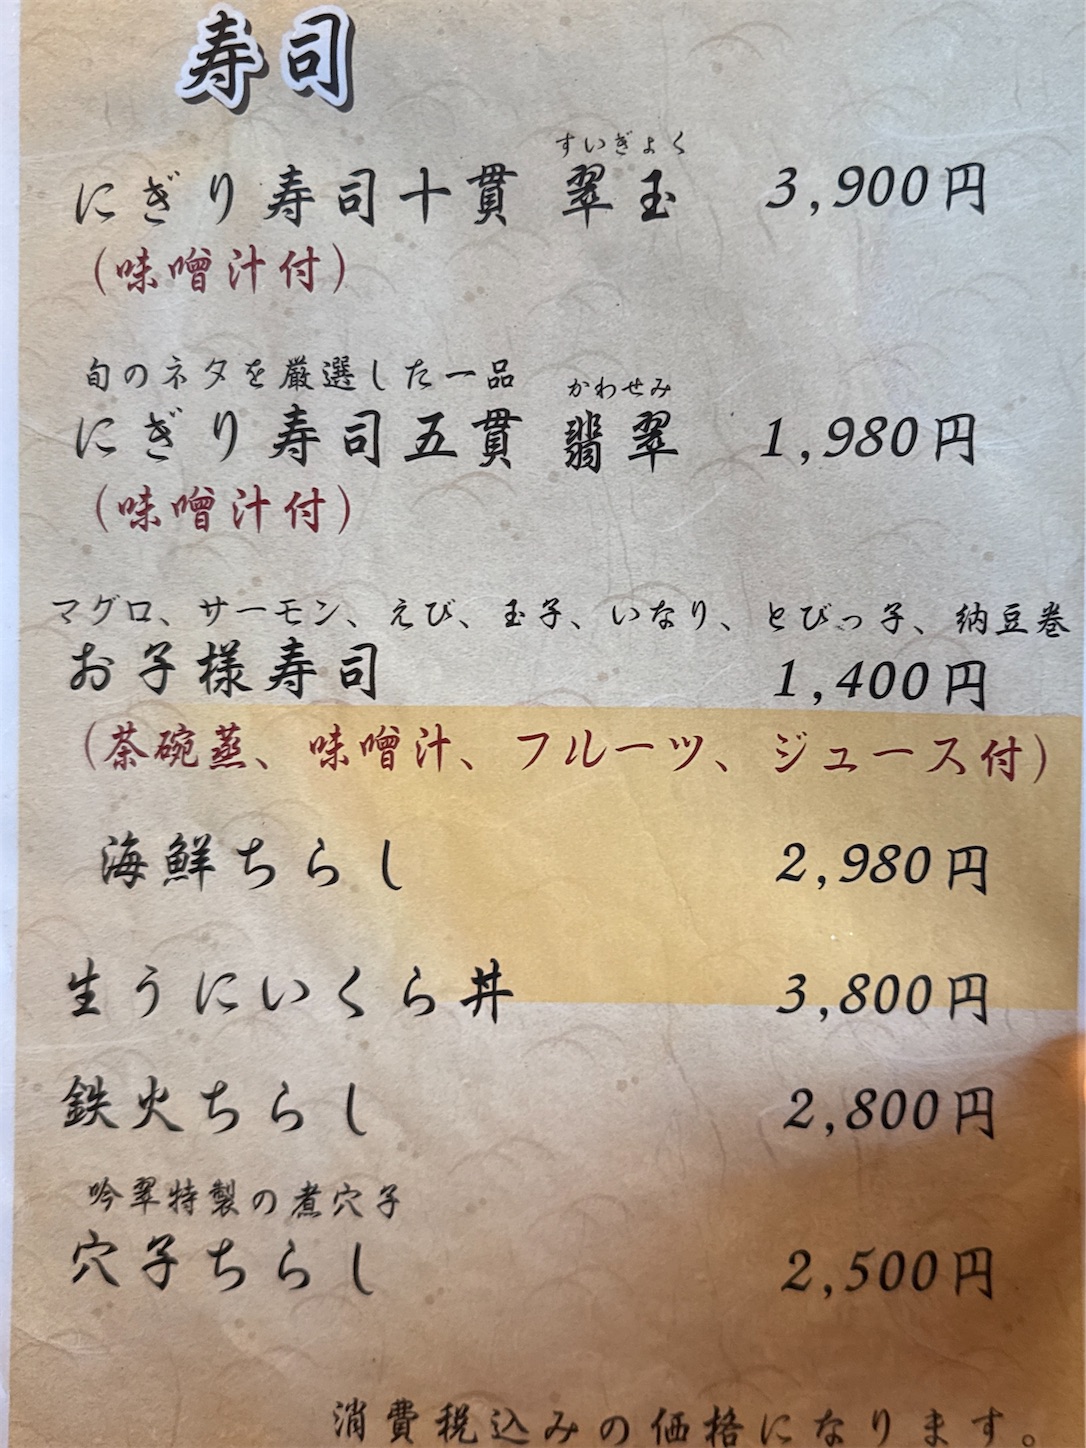 寿司
すいぎょく
にぎり寿司十貫 翠玉 3,900円
(味噌汁付)
旬のネタを厳選した一品
かわせみ
にぎり寿司五貫 翡翠 1,980円
(味噌汁付)
マグロ、サーモン、えび、玉子、いなり、とびっ子、納豆巻
お子様寿司 1,400円
(茶碗蒸、味噌汁、フルーツ、ジュース付)
海鮮ちらし 2,980円
生うにいくら丼 3,800円
鉄火ちらし 2,800円
吟翠特製の煮穴子
穴子ちらし 2,500円
消費税込みの価格になります。